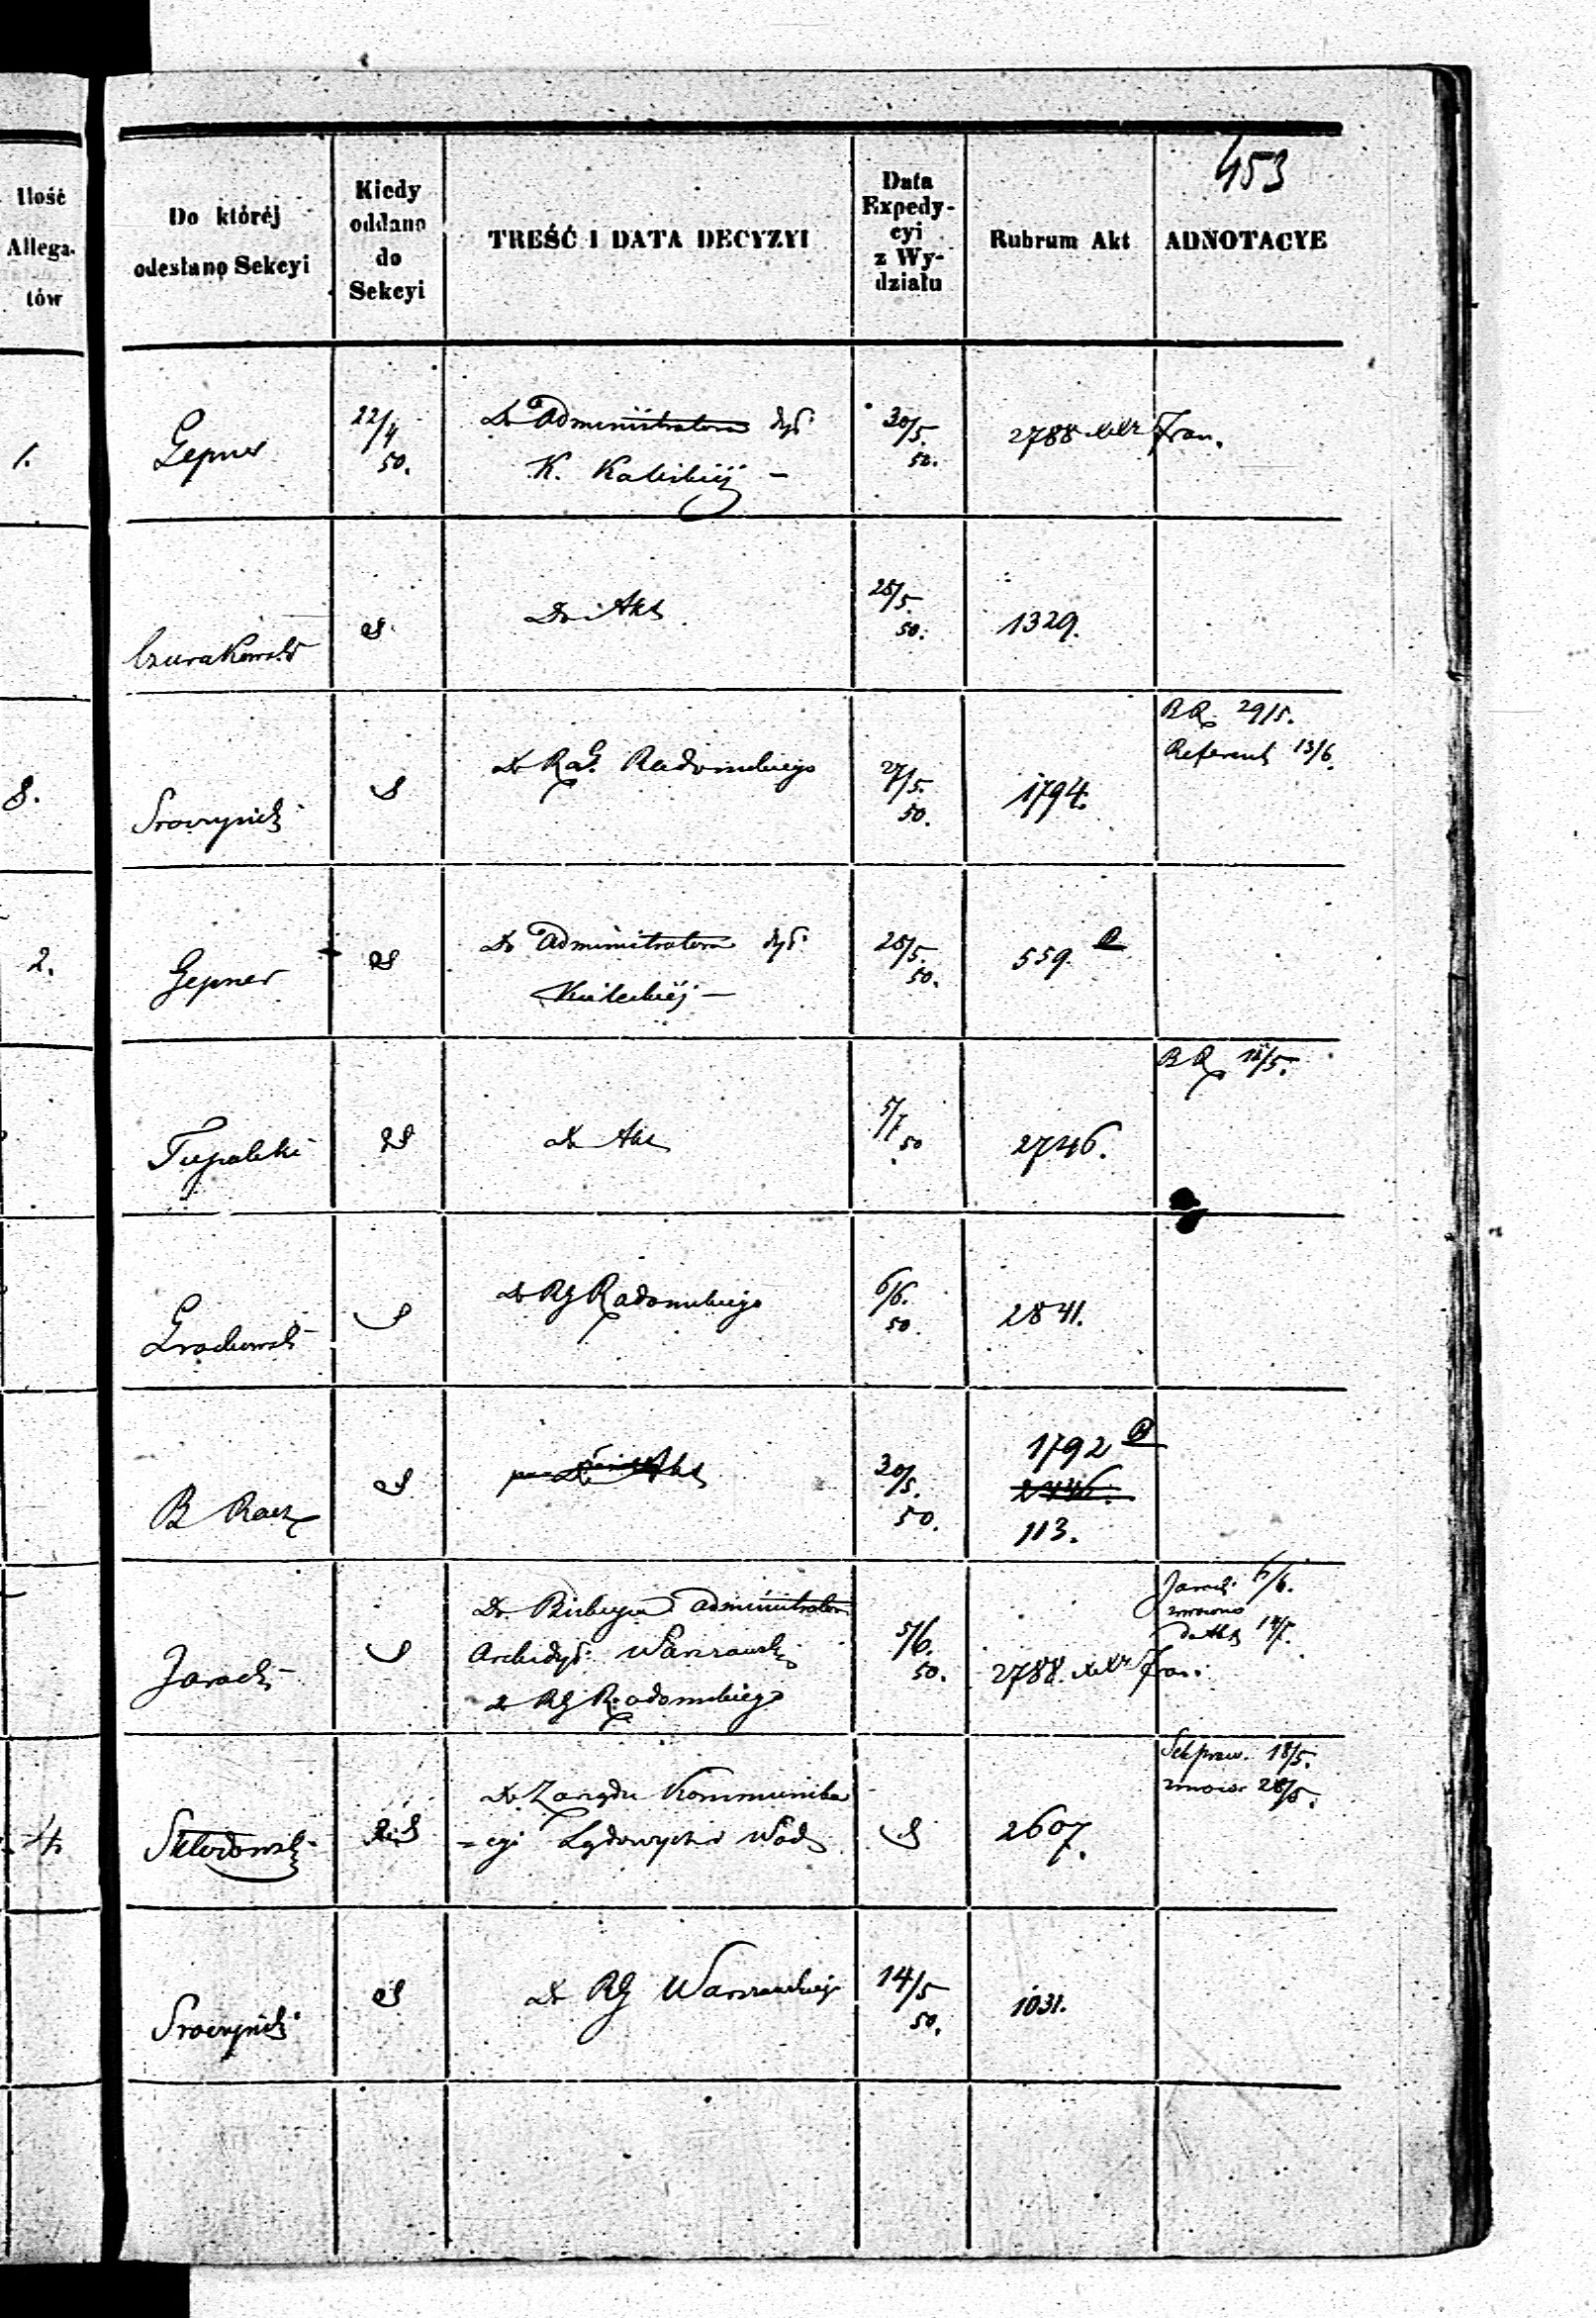 453
Ilość
Allega-
tów
Do któréj
odesłano Sekcyi
Kiedy
oddano
do
Sekcyi
TREŚĆ I DATA DECYZYI
Data
Expedy-
cyi
z Wy-
działu
Rubrum Akt
ADNOTACYE
1.
Gepner
22/4
50.
Do Administratora dyć
K. Kaliskiéj —
30/5.
50.
2788 Fran.
Czurakowski
Do Akt
25/5.
50.
1329.
8.
Sroczyński
Do RG. Radomskiego
27/5.
50.
1794.
BR 29/5.
Referent 13/6.
2.
Gepner
Do Administratora dyć
Kieleckiéj —
25/5.
50.
559.
Tupalski
Do Akt
5/7
50
2746.
BR 18/5.
Grochowski
Do RG Radomskiego
6/6.
50.
2841.
B Racz
Do Akt
30/5.
50.
1792
2746.
113.
Jarocki
Do Biskupa Administratora
Archidyć Warszawski
Do RG Radomskiego
5/6.
50.
2788. Fran.
Jarocki 6/6.
do Akt
4.
Skłodowski
Do Zarządu Kommunika
=cyi Lądowych i Wod
2607.
Sekpraw. 18/5.
28/5.
Sroczyński
Do RG Warszawskiego
14/5
50.
1031.